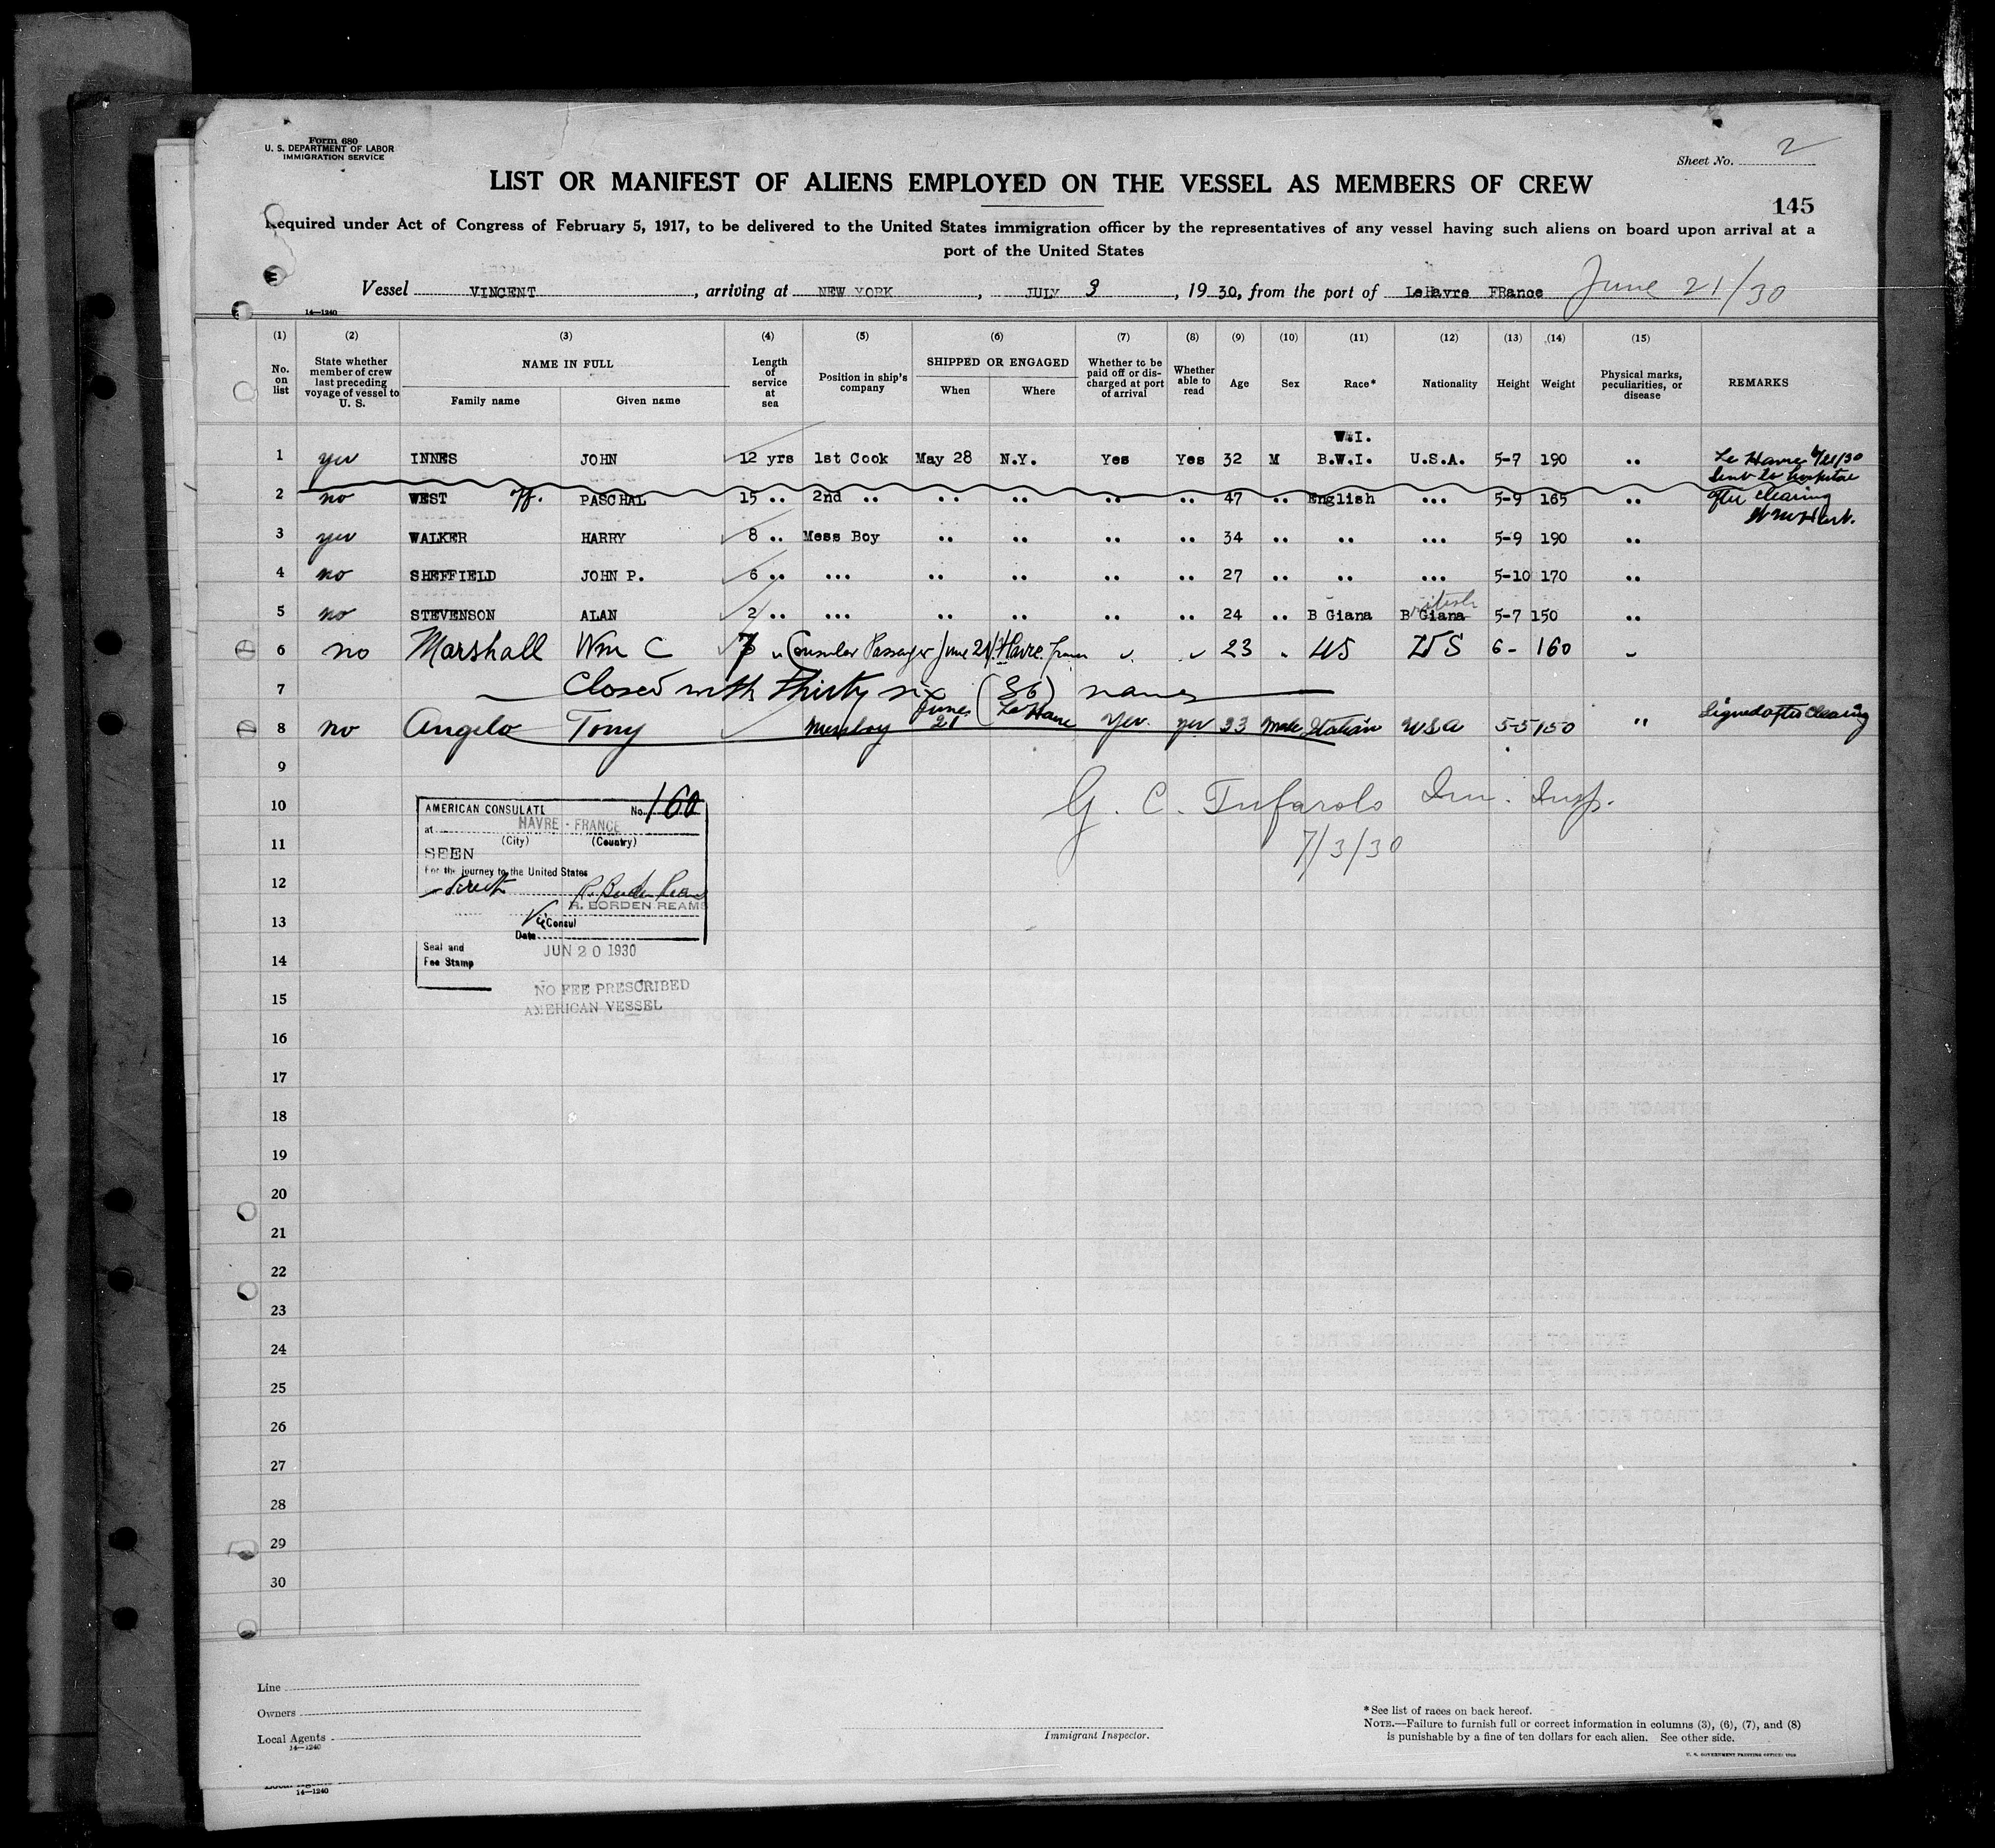 Form 680
U. S. DEPARTMENT OF LABOR
IMMIGRATION SERVICE
Sheet No. 2
LIST OR MANIFEST OF ALIENS EMPLOYED ON THE VESSEL AS MEMBERS OF CREW
145
Required under Act of Congress of February 5, 1917, to be delivered to the United States immigration officer by the representatives of any vessel having such aliens on board upon arrival at a
port of the United States
Vessel VINCENT, arriving at NEW YORK, JULY 3, 1930, from the port of LeHavre FRance June 21/30
14—1240
(1) (2) (3) (4) (5) (6) (7) (8) (9) (10) (11) (12) (13) (14) (15)
No. on list
State whether member of crew last preceding voyage of vessel to U. S.
NAME IN FULL
Family name
Given name
Length of service at sea
Position in ship's company
SHIPPED OR ENGAGED
When
Where
Whether to be paid off or discharged at port of arrival
Whether able to read
Age
Sex
Race*
Nationality
Height
Weight
Physical marks, peculiarities, or disease
REMARKS
W.I.
1 yes INNES JOHN 12 yrs 1st Cook May 28 N.Y. Yes Yes 32 M B.W.I. U.S.A. 5-7 190 ..
Le Havre 6/21/30
Sent to hospital
2 no WEST PASCHAL 15 .. 2nd .. .. .. .. .. 47 .. English ... 5-9 165 .. after clearing
3 yes WALKER HARRY 8 .. Mess Boy .. .. .. .. 34 .. .. ... 5-9 190 ..
4 no SHEFFIELD JOHN P. 6 .. ... .. .. .. .. 27 .. .. ... 5-10 170 ..
5 no STEVENSON ALAN 2 .. ... .. .. .. .. 24 .. B Giana B Giana ritish 5-7 150 ..
6 no Marshall Wm C " Consular Passenger June 21 Havre. France " " 23 " US US 6- 160 "
7 Closed with thirty six (36) names
8 no Angelo Tony Messboy June 21 Le Havre Yes yes 23 Male Italian USA 5-5 150 " Signed after clearing
9
10
11
12
13
14
15
16
17
18
19
20
21
22
23
24
25
26
27
28
29
30
G. C. Tufarolo Imm. Insp.
7/3/30
AMERICAN CONSULATE No. 160
at HAVRE - FRANCE
(City) (Country)
SEEN
For the journey to the United States
direct R. Borden Reams
R. BORDEN REAMS
Vice Consul
Date JUN 20 1930
Seal and
Fee Stamp
NO FEE PRESCRIBED
AMERICAN VESSEL
Line
Owners
Local Agents
14—1240
Immigrant Inspector.
*See list of races on back hereof.
NOTE.—Failure to furnish full or correct information in columns (3), (6), (7), and (8)
is punishable by a fine of ten dollars for each alien. See other side.
14—1240